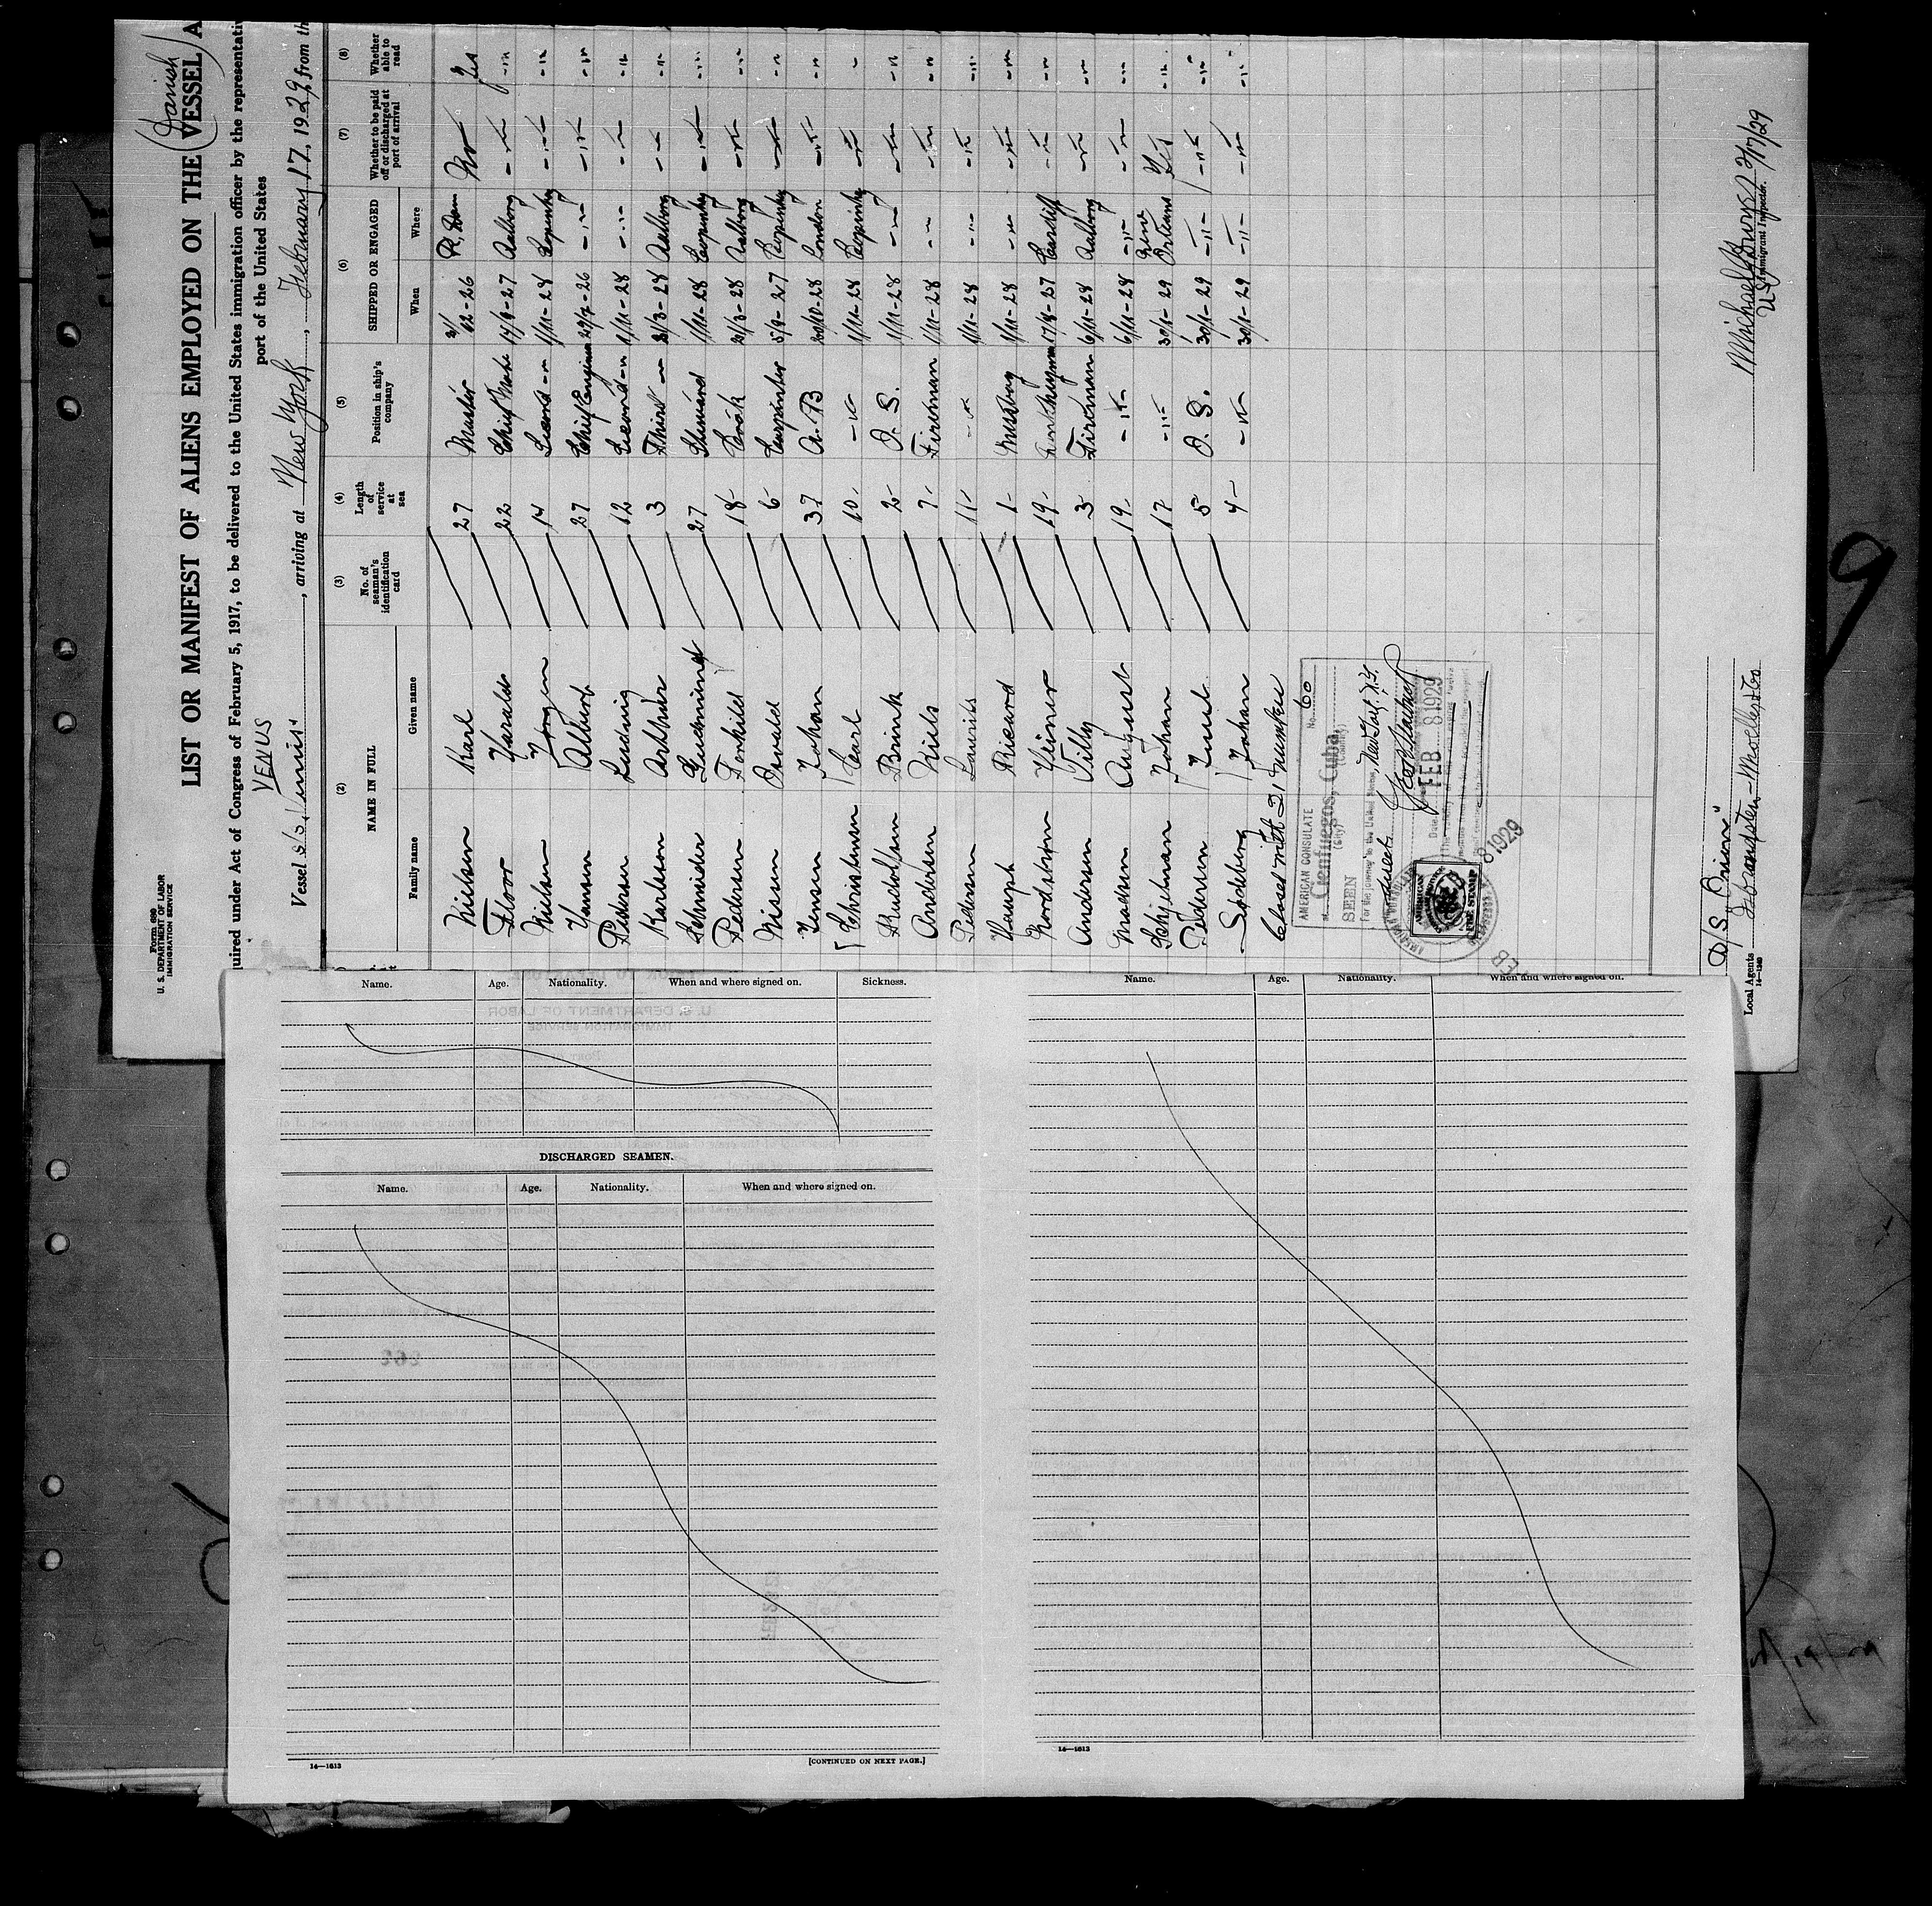 Form 680
U. S. DEPARTMENT OF LABOR
IMMIGRATION SERVICE
(Danish)
LIST OR MANIFEST OF ALIENS EMPLOYED ON THE VESSEL A
quired under Act of Congress of February 5, 1917, to be delivered to the United States immigration officer by the representativ
port of the United States
VENUS
Vessel S/S. "Venus", arriving at New York, February 17, 1929, from th
(2) (3) (4) (5) (6) (7) (8)
NAME IN FULL No. of seaman's identification card Length of service at sea Position in ship's company SHIPPED OR ENGAGED Whether to be paid off or discharged at port of arrival Whether able to read
Family name Given name When Where
Nielsen Karl 27 Master 3/12-26 No Yes
Floor Harald 22 Chief Mate 14/9-27 Aalborg -"- -"-
Nilsen Jørgen 14 Second -"- 1/11-28 Copenhg -"- -"-
Hansen Albert 27 Chief Engineer 29/7-26 -"- -"- -"-
Pedersen Ludwig 12 Second -"- 1/11-28 -"- -"- -"-
Karlson Arthur 3 Third -"- 21/3-28 Aalborg -"- -"-
Schmider 27 Steward 1/11-28 Copenhg -"- -"-
Pedersen Torkild 18 Cook 21/3-28 Aalborg -"- -"-
Nissen Osvald 6 Carpenter 5/9-27 Copenhg -"- -"-
Jensen Johan 37 A.B 20/10-28 London -"- -"-
Christensen Carl 10 -"- 1/11-28 Copenhg -"- -"-
Rudolfsen Brink 2 O.S. 1/11-28 -"- -"- -"-
Andersen Niels 7 Fireman 1/11-28 -"- -"- -"-
Pedersen Laurits 11 -"- 1/11-28 -"- -"- -"-
Ricard 1 Messboy 1/11-28 -"- -"- -"-
Nordstrøm Heiner 19 Donkeyman 17/8-27 Cardiff -"- -"-
Andersen Tilly 3 Fireman 6/11-28 Aalborg -"- -"-
Madsen August 19 -"- 6/11-28 -"- -"- -"-
Schjelman Johan 17 -"- 30/1-29 New Orleans Yes -"-
Pedersen Knud 5 O.S. 30/1-29 -"- -"- -"-
Søderberg Johan 4 -"- 30/1-29 -"- -"- -"-
Closed with 21 number
AMERICAN CONSULATE No. 60
at Cienfuegos, Cuba
(City) (Country)
SEEN
For the journey to the United States, New York, N.Y.
direct
Date FEB 8 1929
AMERICAN
FEE STAMP
FEB 8 1929
D/S "Orion"
Local Agents
14—1240
Michael 2/17/29
U.S. Immigrant Inspector.
Name. Age. Nationality. When and where signed on. Sickness.
DISCHARGED SEAMEN.
Name. Age. Nationality. When and where signed on.
14—1613 [CONTINUED ON NEXT PAGE.]
Name. Age. Nationality. When and where signed on.
14—1613
9